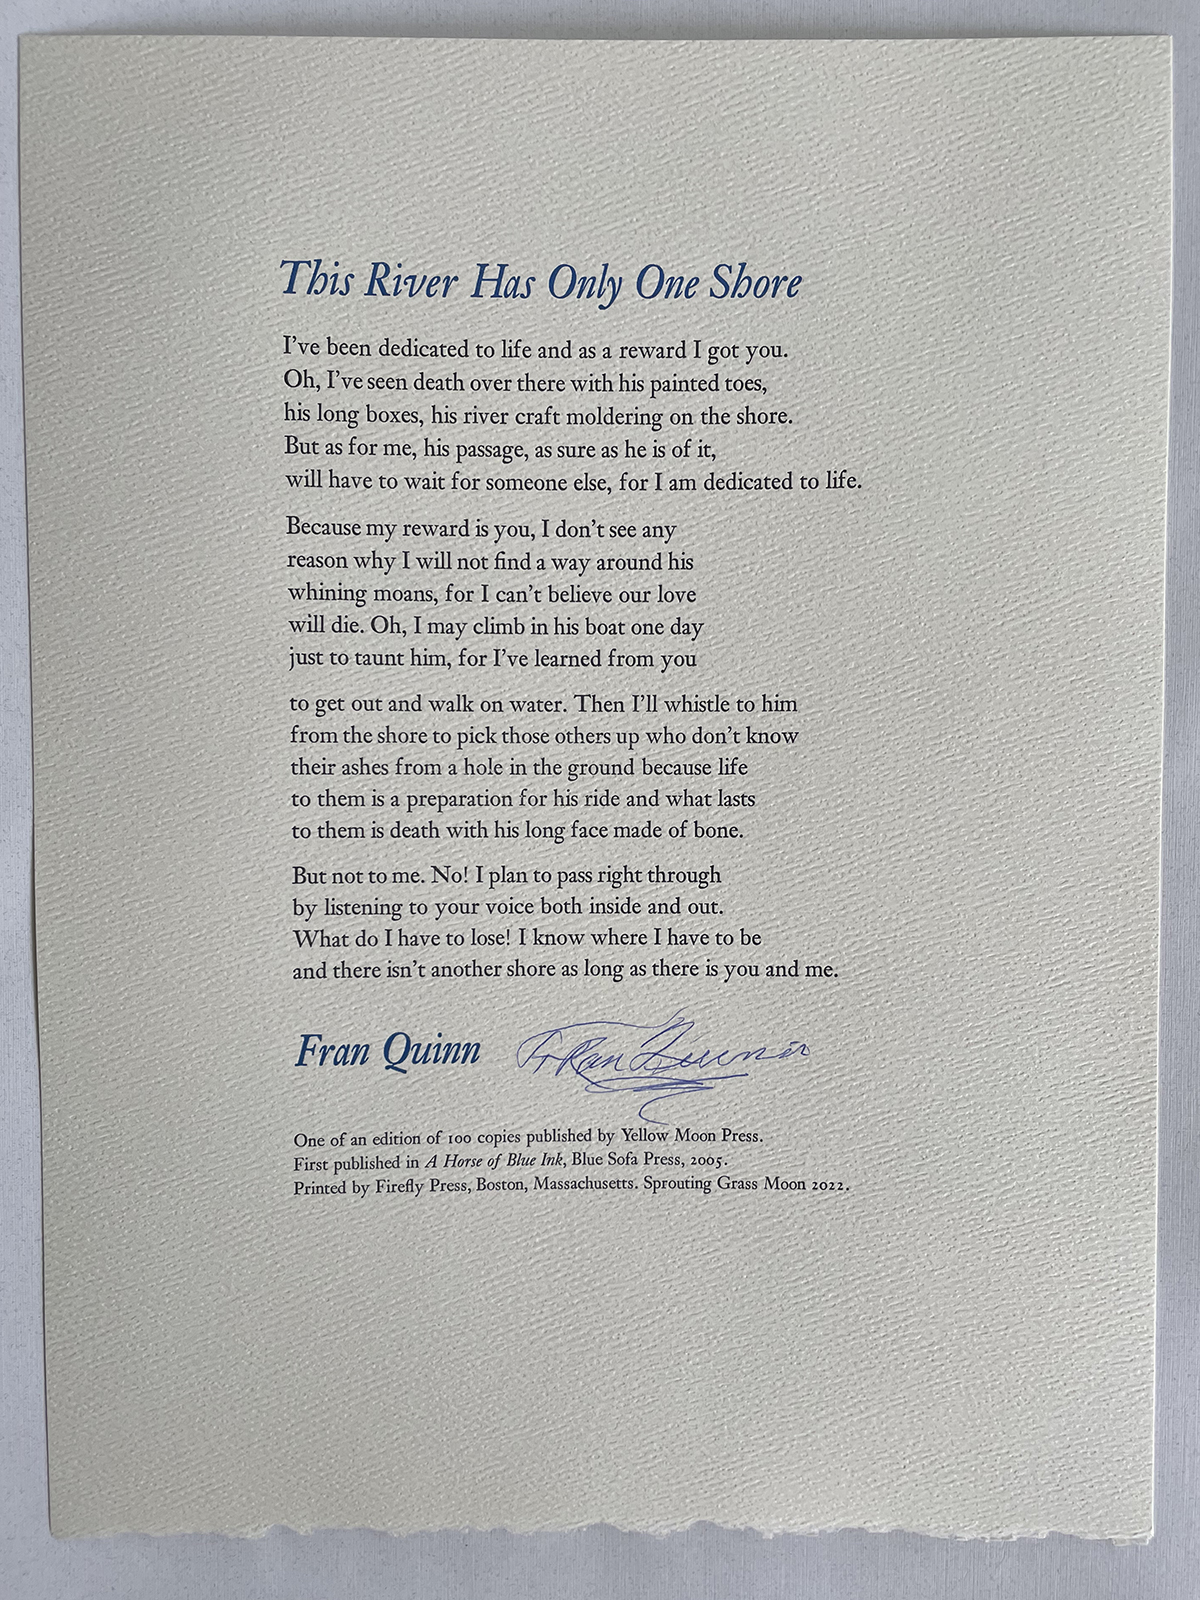 This River Has Only One Shore
I've been dedicated to life and as a reward I got you.
Oh, I've seen death over there with his painted toes,
his long boxes, his river craft moldering on the shore.
But as for me, his passage, as sure as he is of it,
will have to wait for someone else, for I am dedicated to life.
Because my reward is you, I don't see any
reason why I will not find a way around his
whining moans, for I can't believe our love
will die. Oh, I may climb in his boat one day
just to taunt him, for I've learned from you
to get out and walk on water. Then I'll whistle to him
from the shore to pick those others up who don't know
their ashes from a hole in the ground because life
to them is a preparation for his ride and what lasts
to them is death with his long face made of bone.
But not to me. No! I plan to pass right through
by listening to your voice both inside and out.
What do I have to lose! I know where I have to be
and there isn't another shore as long as there is you and me.
Fran Quinn Fran Quinn
One of an edition of 100 copies published by Yellow Moon Press.
First published in A Horse of Blue Ink, Blue Sofa Press, 2005.
Printed by Firefly Press, Boston, Massachusetts. Sprouting Grass Moon 2022.